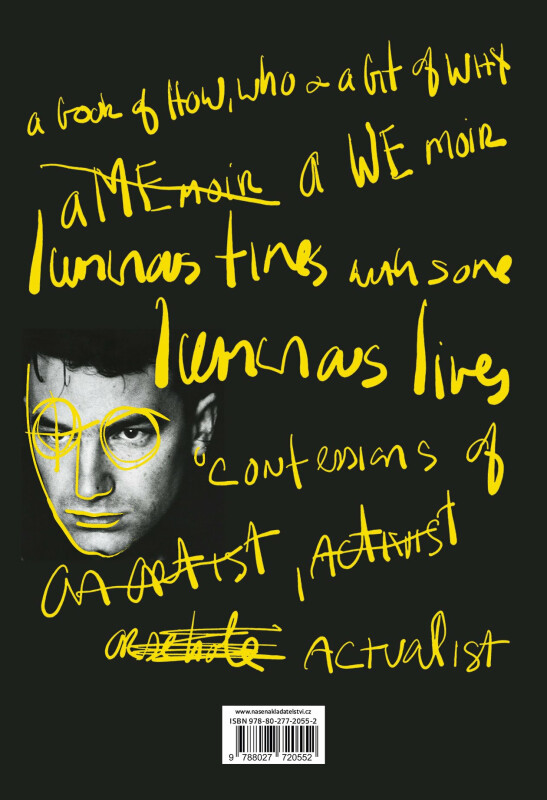 a book of HOW, who & a bit of WHY
a MEmoir a WE moir
luminous times with some
luminous lives
confessions of
an artist, Activist
arsehole Actualist
www.nasenakladatelstvi.cz
ISBN 978-80-277-2055-2
9 788027 720552